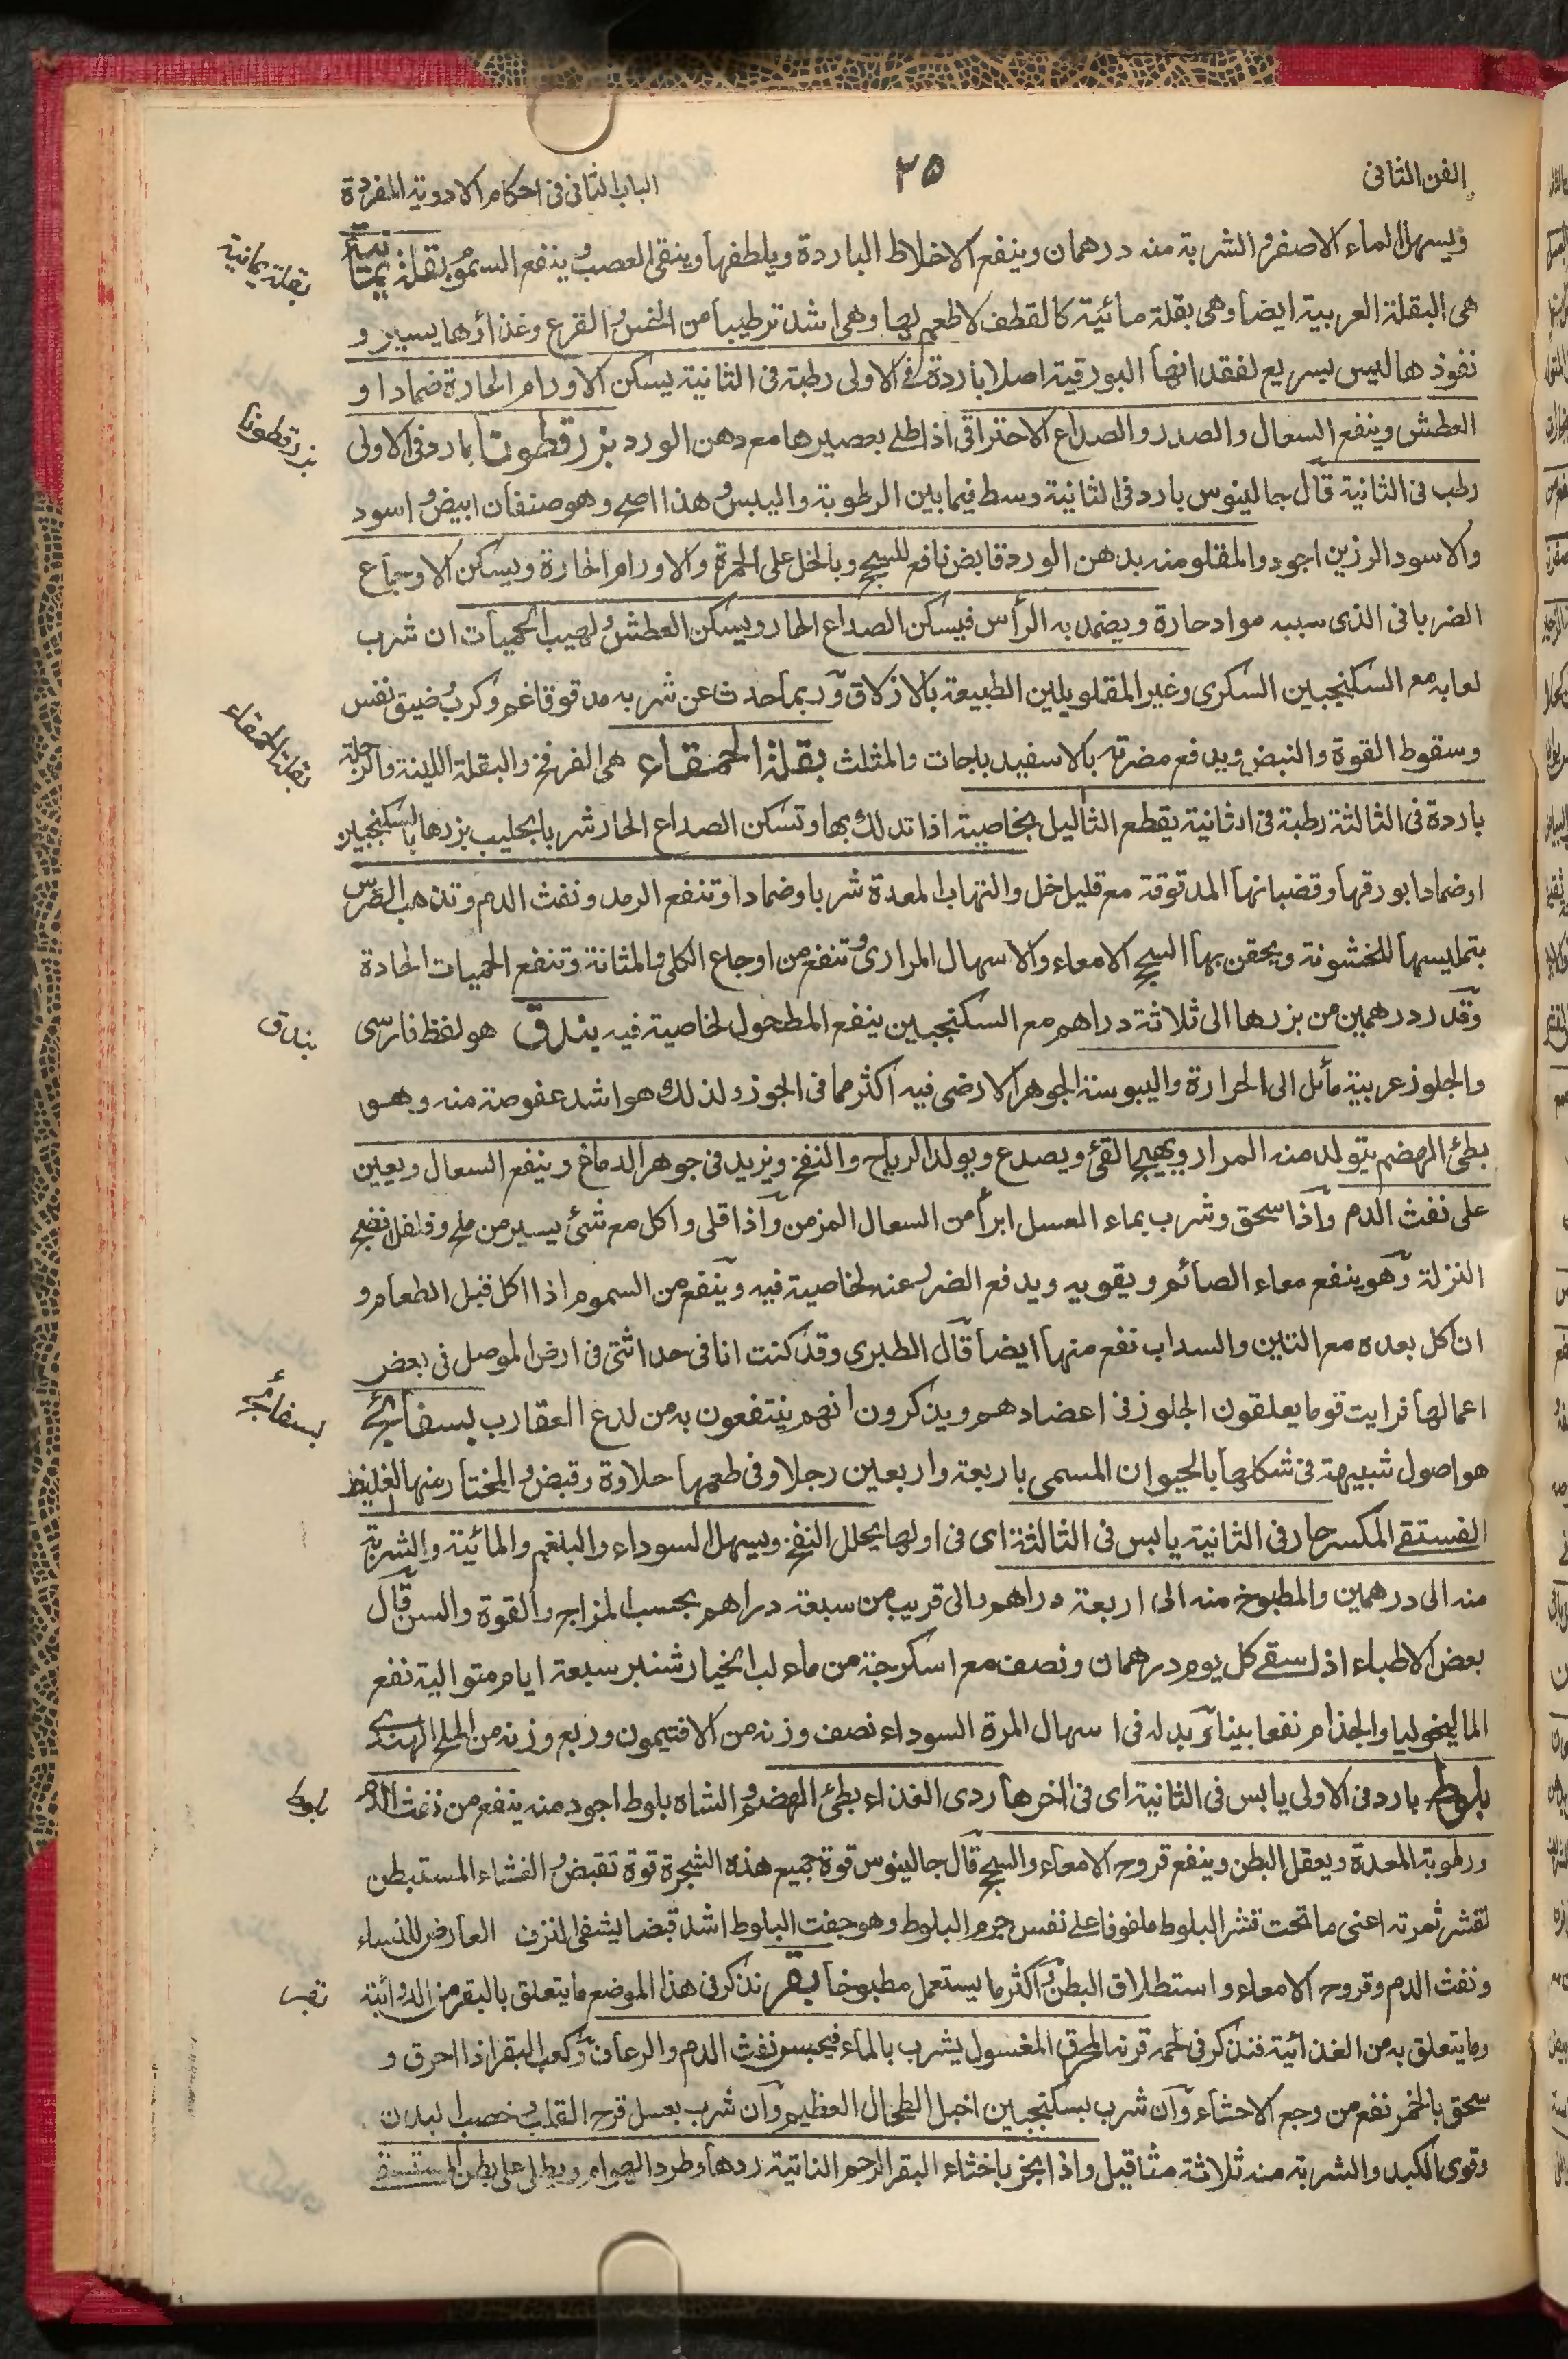 الفن الثانى
٢٥
الباب الثانى فى احكام الادوية المفردة
ويسهل الماء الاصفر والشربة منه درهمان وينفع الاخلاط الباردة ويلطفها وينقى العصب وينفع السموم بقلة يمانية
هى البقلة العربية ايضا وهى بقلة مائية كالقطف لاطعم لها وهى اشد ترطيبا من الخس والقرع وغذاؤها يسير و
نفوذها ليس بسريع لفقدانها البورقية اصلا باردة فى الاولى رطبة فى الثانية يسكن الاورام الحارة ضمادا و
العطش وينفع السعال والصدر والصداع الاحتراقى اذا طلى بعصيرها مع دهن الورد بزرقطونا بارد فى الاولى
رطب فى الثانية قال جالينوس بارد فى الثانية وسط فيما بين الرطوبة واليبس وهذا اصح وهو صنفان ابيض واسود
والاسود الرزين اجود والمقلو منه بدهن الورد قابض نافع للسحج وبالخل على الحمرة والاورام الحارة ويسكن الاوجاع
الضربانى الذى سببه مواد حارة ويضمد به الرأس فيسكن الصداع الحار ويسكن العطش ولهيب الحميات ان شرب
لعابه مع السكنجبين السكرى وغير المقلو يلين الطبيعة بالازلاق وربما حدث عن شربه مدقوقا غم وكرب وضيق نفس
وسقوط القوة والنبض ويدفع مضرته بالاسفيدباجات والمثلث بقلة الحمقاء هى الفرفخ والبقلة اللينة والرجلة
باردة فى الثالثة رطبة فى الثانية يقطع الثاليل بخاصية اذا تدلك بها وتسكن الصداع الحار شربا بحليب بزرها بالسكنجبين
او ضمادا بورقها وقضبانها المدقوقة مع قليل خل والتهاب المعدة شربا وضمادا وتنفع الرمد ونفث الدم وتذهب الضرس
بتمليسها للخشونة ويحقن بها لسحج الامعاء والاسهال المرارى وتنفع من اوجاع الكلى والمثانة وتنفع الحميات الحادة
وقدر درهمين من بزرها الى ثلاثة دراهم مع السكنجبين ينفع المطحول لخاصية فيه بندق هو لفظ فارسى
والجلوز عربية مائل الى الحرارة واليبوسة الجوهر الارضى فيه اكثر مما فى الجوز ولذلك هو اشد عفوصة منه وهو
بطئ الهضم يتولد منه المرار ويهيج القئ ويصدع ويولد الرياح والنفخ ويزيد فى جوهر الدماغ وينفع السعال ويعين
على نفث الدم واذا سحق وشرب بماء العسل ابرأ من السعال المزمن واذا قلى واكل مع شئ يسير من ملح وفلفل انضج
النزلة وهو ينفع معاء الصائم ويقويه ويدفع الضرر عنه لخاصية فيه وينفع من السموم اذا اكل قبل الطعام و
ان كل بعده مع التين والسداب نفع منها ايضا قال الطبرى وقد كنت انا فى حداثتى فى ارض الموصل فى بعض
اعمالها فرايت قوما يعلقون الجلوز فى اعضادهم ويذكرون انهم ينتفعون به من لدغ العقارب بسفائج
هو اصول شبيهة فى شكلها بالحيوان المسمى باربعة واربعين رجلا وفى طعمها حلاوة وقبض والمختار منها الغليظ
الفستقى المكسر حار فى الثانية يابس فى الثالثة اى فى اولها يحلل النفخ ويسهل السوداء والبلغم والمائية والشربة
منه الى درهمين والمطبوخ منه الى اربعة دراهم والى قريب من سبعة دراهم بحسب المزاج والقوة والسن قال
بعض الاطباء اذا سقى كل يوم درهمان ونصف مع اسكرجة من ماء لب الخيار شنبر سبعة ايام متوالية نفع
الماليخوليا والجذام نفعا بينا وبدله فى اسهال المرة السوداء نصف وزنه من الافتيمون وربع وزنه من الملح الهندى
بلوط بارد فى الاولى يابس فى الثانية اى فى اخرها ردى الغذاء بطئ الهضم والشاه بلوط اجود منه ينفع من نفث الدم
ورطوبة المعدة ويعقل البطن وينفع قروح الامعاء والسحج قال جالينوس قوة جميع هذه الشجرة قوة تقبض والغشاء المستبطن
لقشر ثمرته اعنى ما تحت قشر البلوط ملفوفا على نفس جرم البلوط وهو جفت البلوط اشد قبضا يشفى النزف العارض للنساء
ونفث الدم وقروح الامعاء واستطلاق البطن واكثر ما يستعمل مطبوخا بقر نذكر فى هذا الموضع ما يتعلق بالبقر من الدوائية
وما يتعلق به من الغذائية فنذكر فى لحمه قرنه المحرق المغسول يشرب بالماء فيحبس نفث الدم والرعاف وكعب البقر اذا احرق و
سحق بالخمر نفع من وجع الاحشاء وان شرب بسكنجبين اخبل الطحال العظيم وان شرب بعسل فرح القلب وخصب البدن
وقوى الكبد والشربة منه ثلاثة مثاقيل واذا بخر باخثاء البقر الرحم الناتية ردها وطرد الهوام ويطلى على بطن المستسقى
بقلة يمانية
بزرقطونا
بقلة الحمقاء
بندق
بسفائج
بلوط
بقر